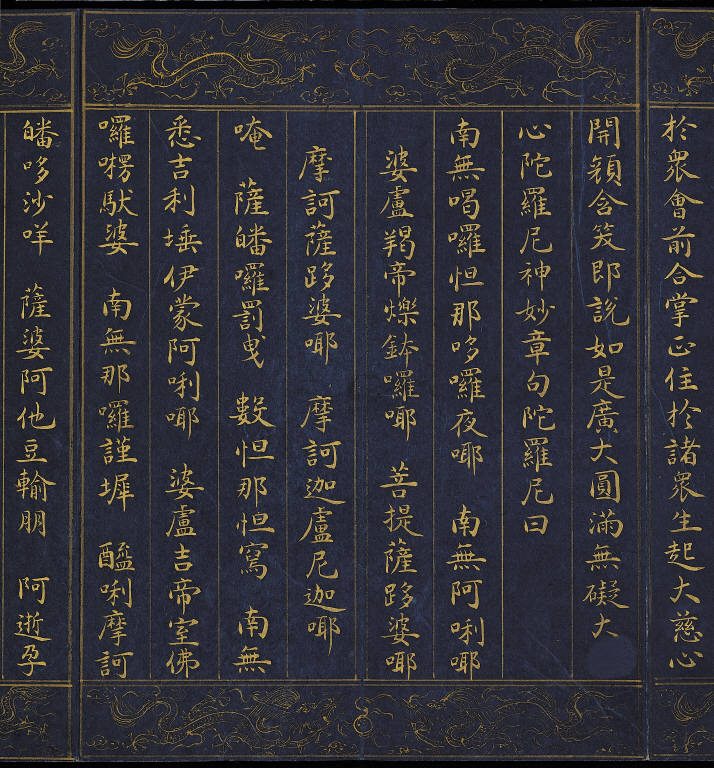 於眾會前合掌正住於諸眾生起大慈心
開顏含笑即說如是廣大圓滿無礙大
心陀羅尼神妙章句陀羅尼曰
南無喝囉怛那哆囉夜耶 南無阿唎耶
婆盧羯帝爍鉢囉耶 菩提薩跢婆耶
摩訶薩跢婆耶 摩訶迦盧尼迦耶
唵 薩皤囉罰曳 數怛那怛寫 南無
悉吉利埵伊蒙阿唎耶 婆盧吉帝室佛
囉楞馱婆 南無那囉謹墀 醯唎摩訶
皤哆沙咩 薩婆阿他豆輸朋 阿逝孕